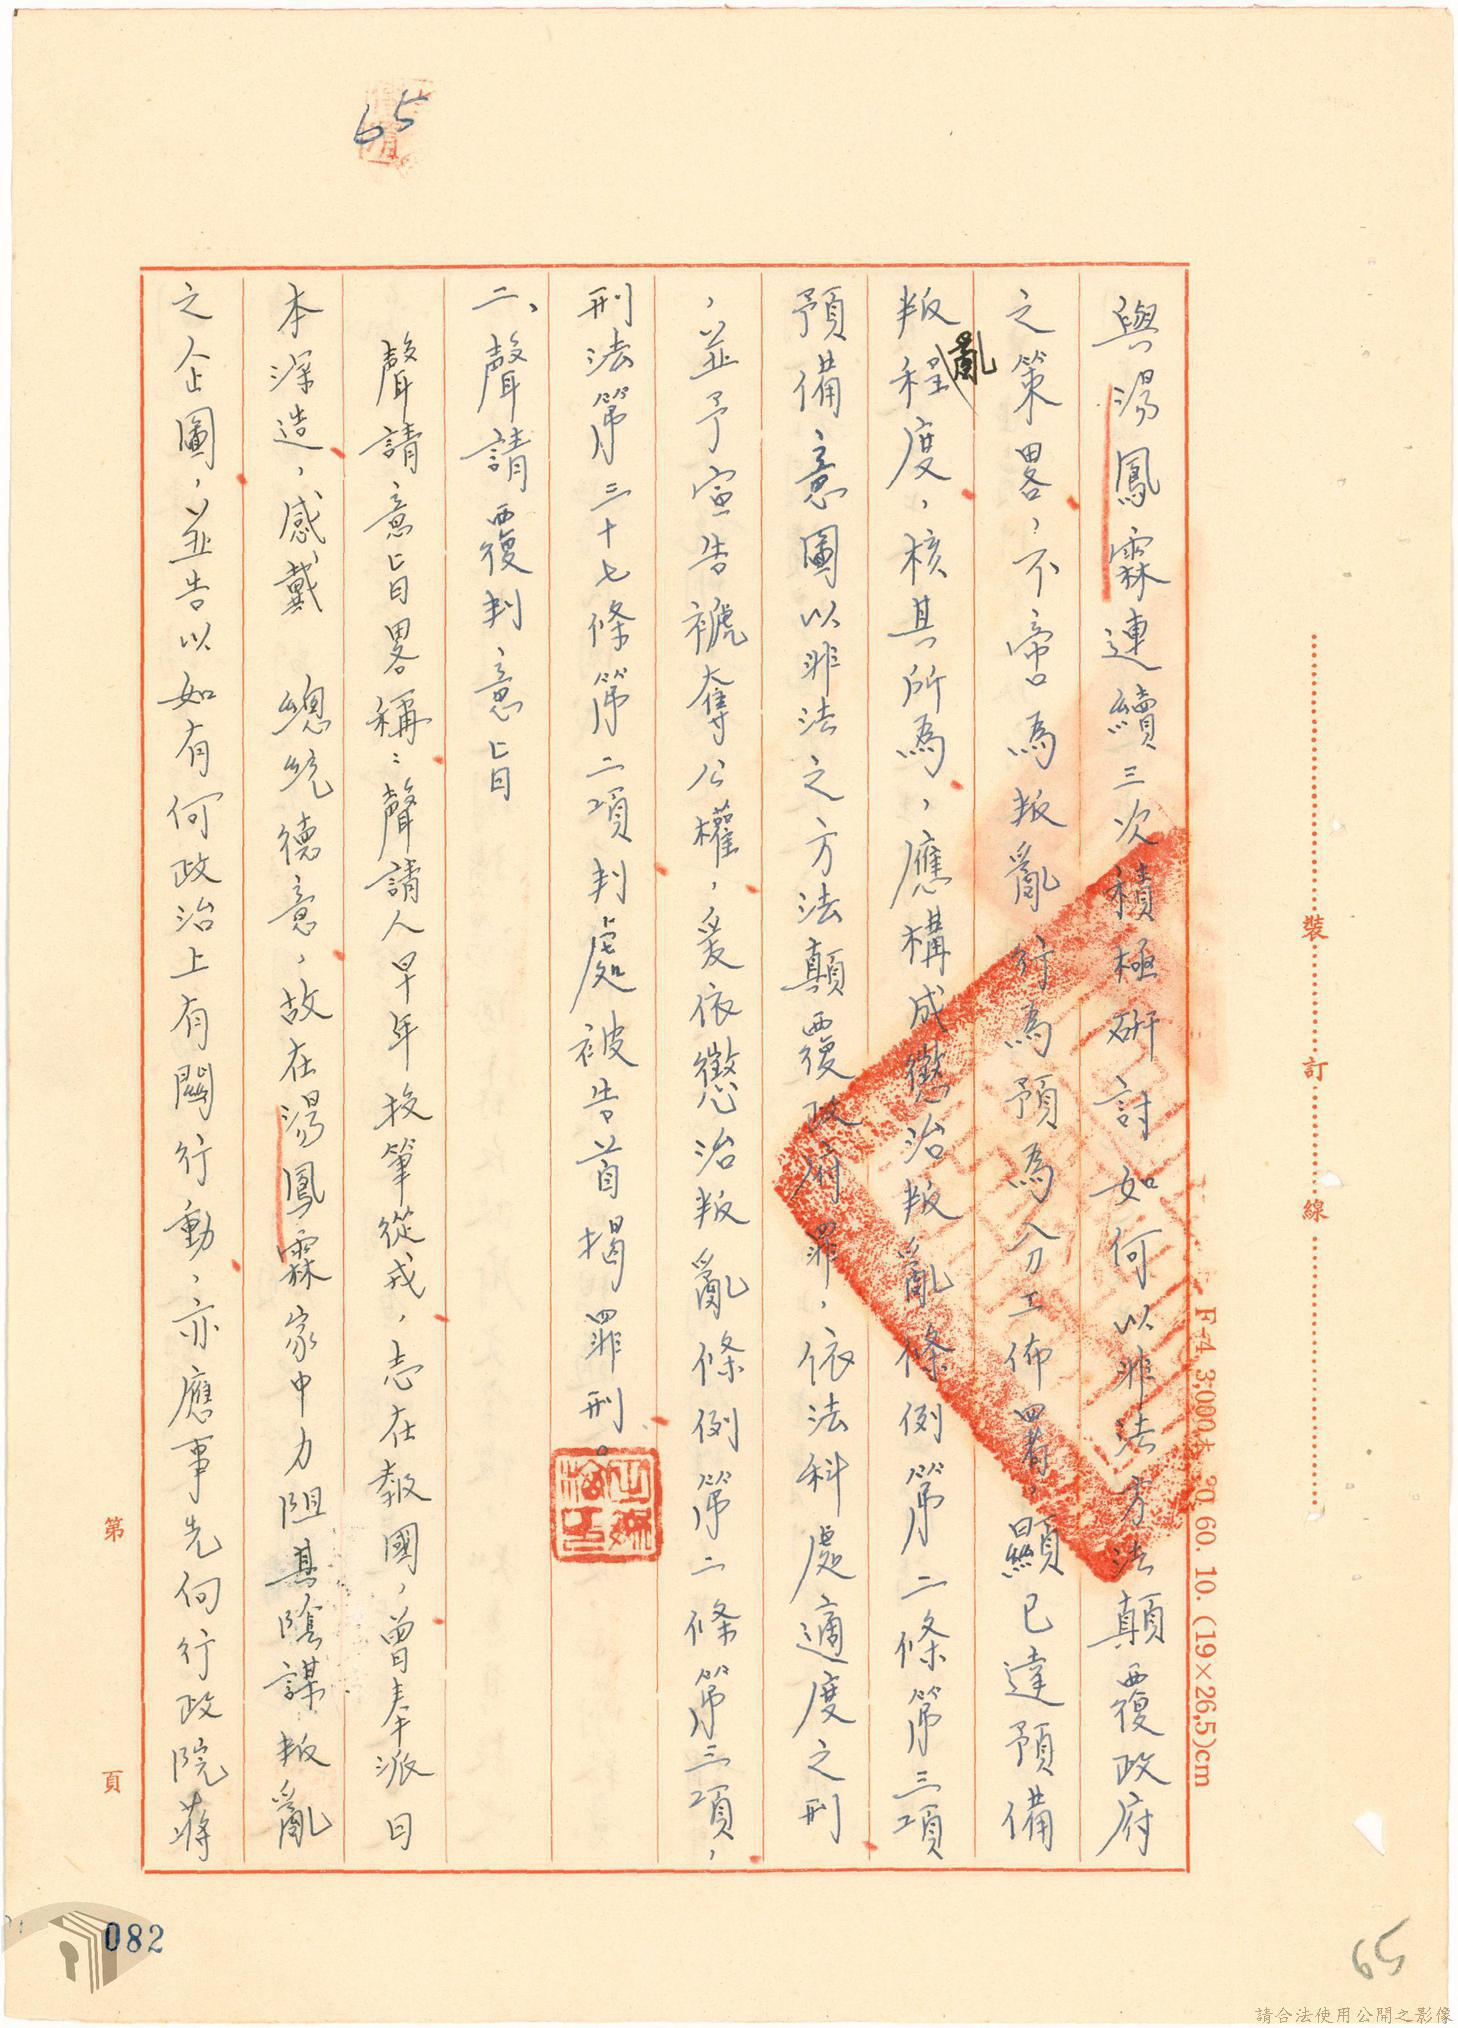 65
與湯鳳霖連續三次積極研討如何以非法方法顛覆政府
之策畧，不啻為叛亂行為預為分工佈署，顯已達預備
叛亂程度，核其所為，應構成懲治叛亂條例第二條第三項
預備意圖以非法之方法顛覆政府罪，依法科處適度之刑
，並予宣告褫奪公權，爰依懲治叛亂條例第二條第三項，
刑法第三十七條第二項判處被告首揭罪刑。
二、聲請覆判意旨
聲請意旨畧稱：聲請人早年投筆從戎，志在報國，曾奉派日
本深造，感戴　總統德意，故在湯鳳霖家中力阻其陰謀叛亂
之企圖，並告以如有何政治上有關行動，亦應事先向行政院蔣
裝
訂
線
F-4 3,000本 60.10.(19×26.5)cm
第
頁
082
65
請合法使用公開之影像